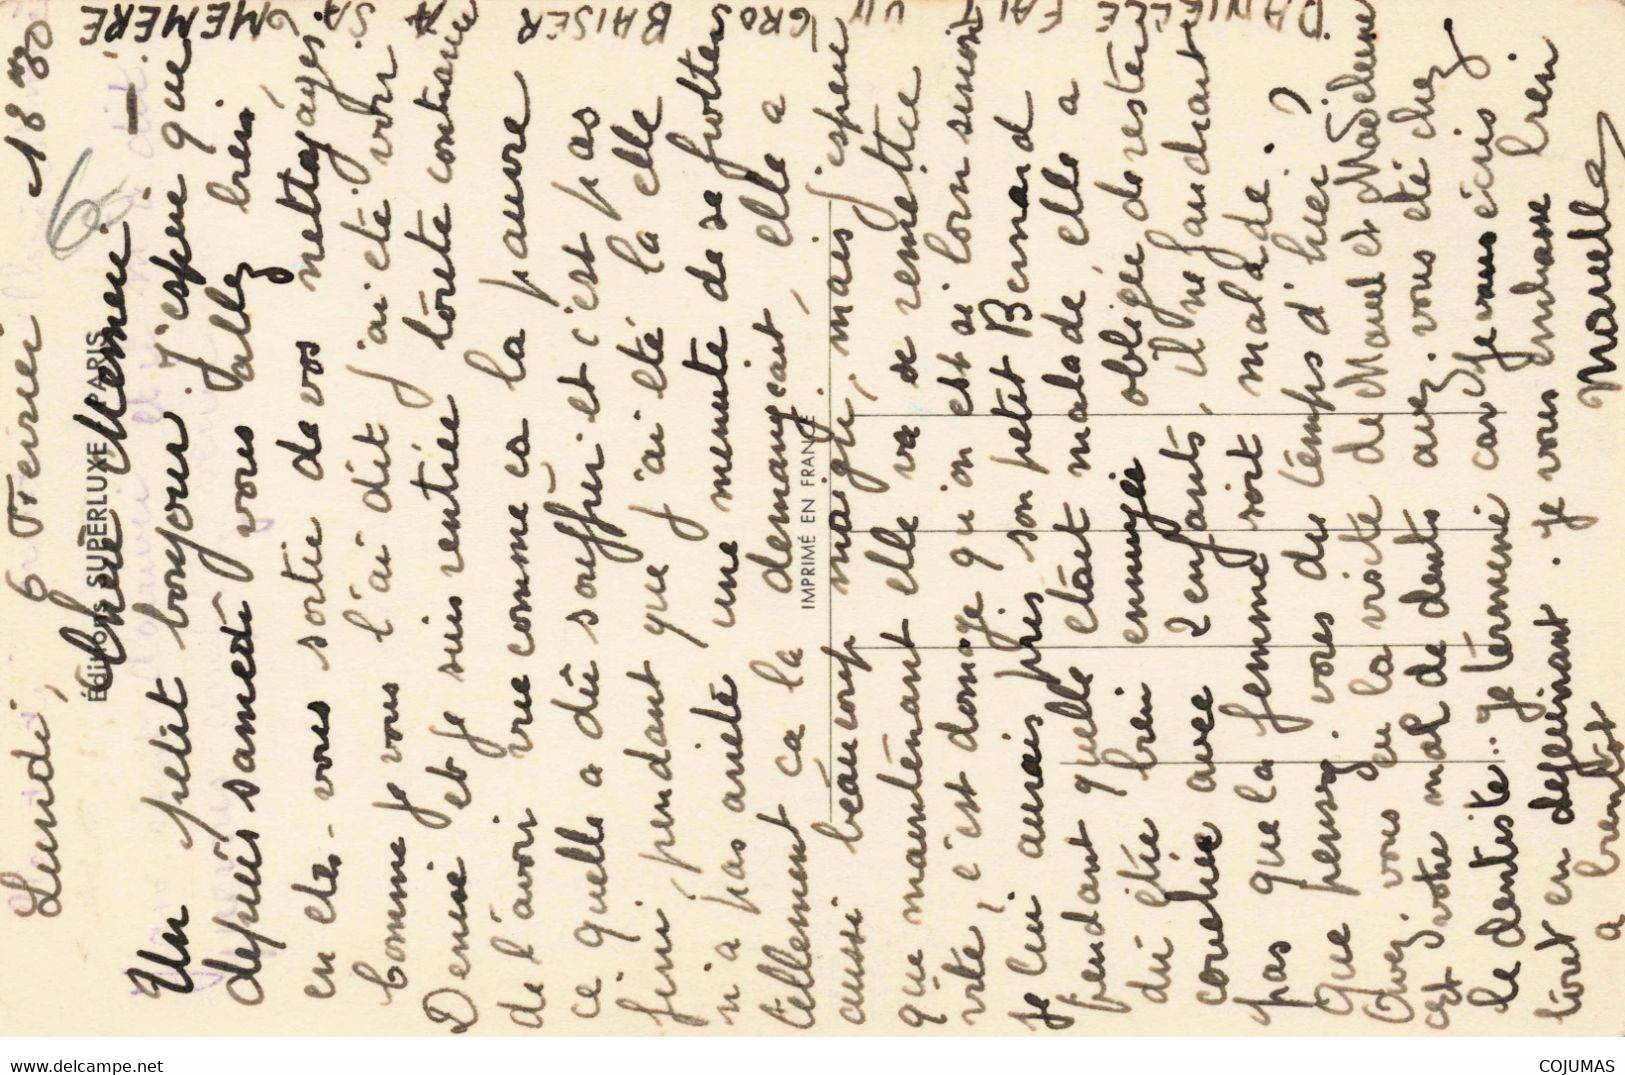 Lundi, 6 Février 18 H 30
6
ÉDITIONS SUPERLUXE PARIS
Chère Mémère
Un petit bonjour. J'espère que
depuis samedi vous allez bien
en êtes-vous sortie de vos nettoyages
comme je vous l'ai dit j'ai été voir
Denise et je suis rentrée toute contrariée
de l'avoir vue comme ça la pauvre
ce quelle a dû souffrir et c'est pas
fini, pendant que j'ai été la elle
n'a pas arrété une menute de se frotter
tellement ca la demangeait, elle a
aussi beaucoup maigri, mais j'espere
que maintenant elle va se remettre
vite, c'est domage qu'on est si loin sinon
je lui aurais pris son petit Bernard
pendant quelle était malade, elle a
dû être bien ennuyée obligée de rester
couchée avec 2 enfants, il ne faudrait
pas que la femme soit malade.
Que pensez-vous du temps d'hier?
Avez vous eu la visite de Marcel et Madeleine
est votre mal de dents avez-vous été chez
le dentiste. je termine car je vous écris
tout en dejeunant. je vous embrasse bien
a bientôt
Marcelle
IMPRIMÉ EN FRANCE
DANIELLE FAIT UN GROS BAISER A SA MEMERE
COJUMAS
www.delcampe.net